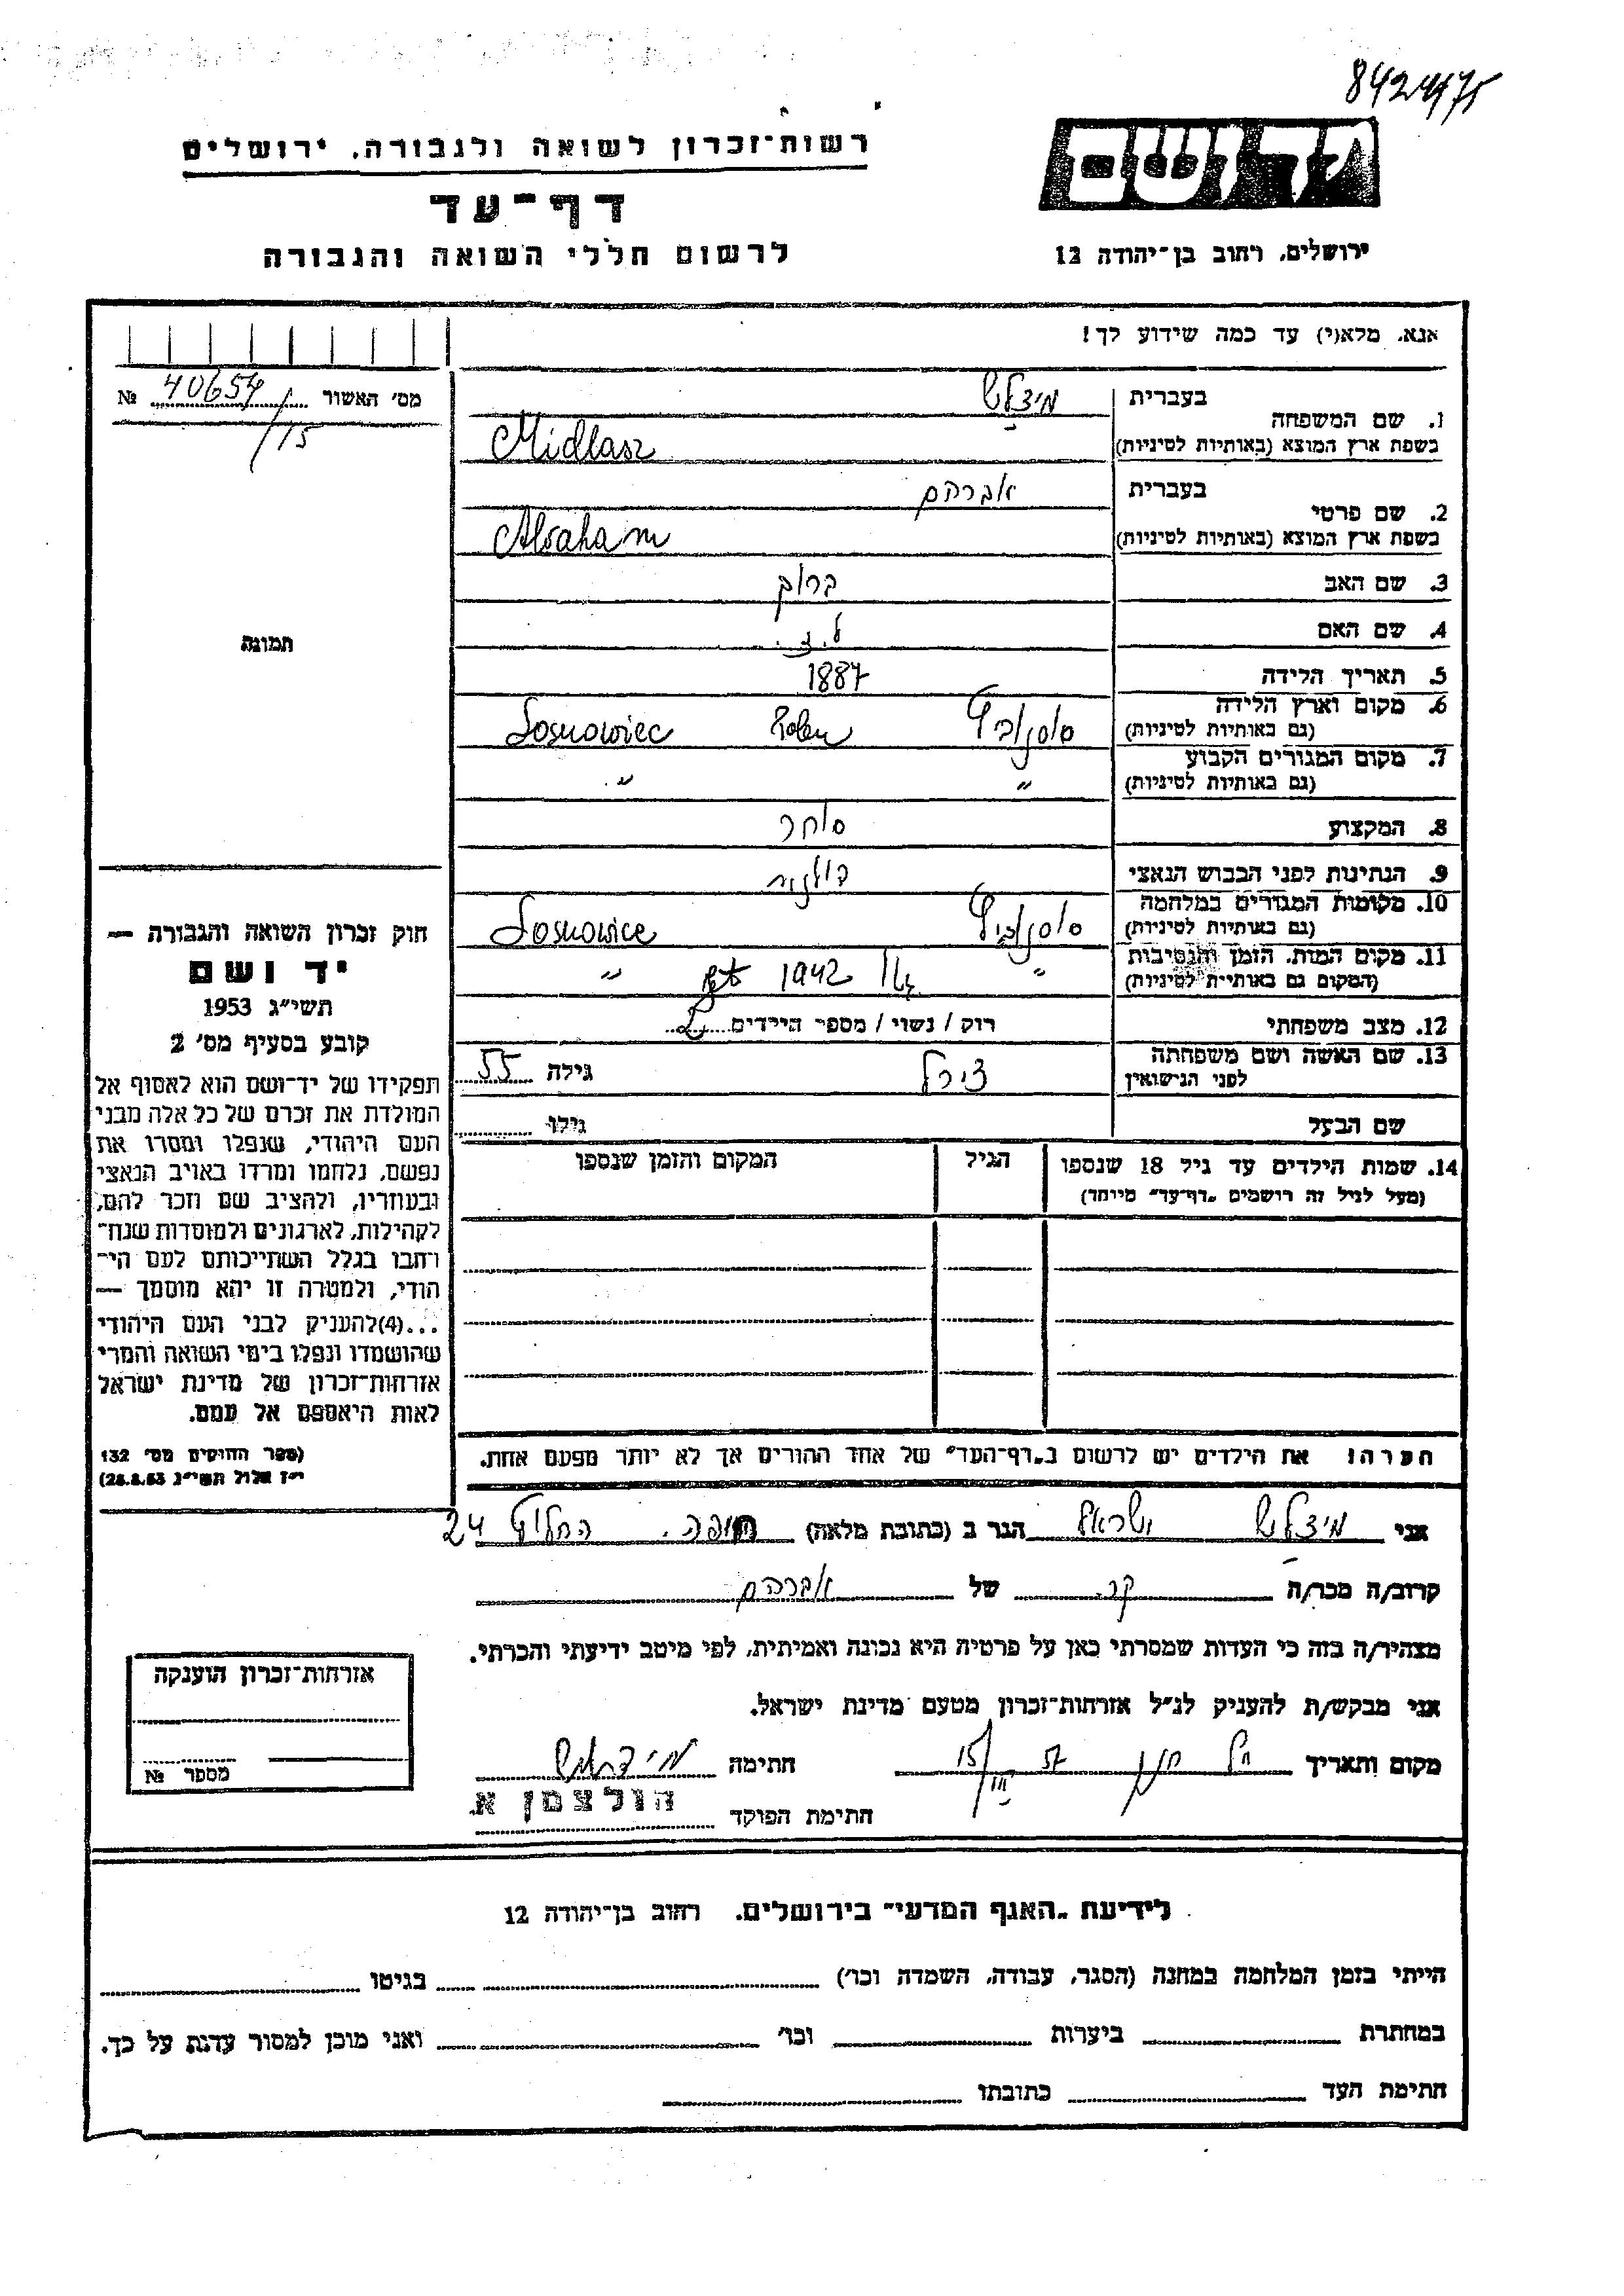 8424175
יד ושם
רשות־זכרון לשואה ולגבורה, ירושלים
דף־עד
לרשום חללי השואה והגבורה
ירושלים, רחוב בן־יהודה 12
אנא, מלא(י) עד כמה שידוע לך!
מס' האשור 40654 №
/15
תמונה
1. שם המשפחה
בעברית מידלש
בשפת ארץ המוצא (באותיות לטיניות) Midlasz
2. שם פרטי
בעברית אברהם
בשפת ארץ המוצא (באותיות לטיניות) Abraham
3. שם האב ברוך
4. שם האם ל.י.
5. תאריך הלידה 1887
6. מקום וארץ הלידה סוסנוביץ Polen Sosnowiec
(גם באותיות לטיניות)
7. מקום המגורים הקבוע " "
(גם באותיות לטיניות)
8. המקצוע סוחר
9. הנתינות לפני הכבוש הנאצי פולנית
10. מקומות המגורים במלחמה סוסנוביץ Sosnowice
(גם באותיות לטיניות)
11. מקום המות, הזמן והנסיבות " 1942 "
(המקום גם באותיות לטיניות)
12. מצב משפחתי רוק / נשוי / מספר הילדים
13. שם האשה ושם משפחתה לפני הנישואין צירל גילה 55
שם הבעל גילו
14. שמות הילדים עד גיל 18 שנספו הגיל המקום והזמן שנספו
(מעל לגיל זה רושמים „דף־עד” מיוחד)
הערה! את הילדים יש לרשום ב„דף־העד” של אחד ההורים אך לא יותר מפעם אחת.
חוק זכרון השואה והגבורה —
יד ושם
תשי״ג 1953
קובע בסעיף מס' 2
תפקידו של יד־ושם הוא לאסוף אל
המולדת את זכרם של כל אלה מבני
העם היהודי, שנפלו ומסרו את
נפשם, נלחמו ומרדו באויב הנאצי
ובעוזריו, ולהציב שם וזכר להם,
לקהילות, לארגונים ולמוסדות שנח־
רבו בגלל השתייכותם לעם הי־
הודי, ולמטרה זו יהא מוסמך —
...(4)להעניק לבני העם היהודי
שהושמדו ונפלו בימי השואה והמרי
אזרחות־זכרון של מדינת ישראל
לאות היאספם אל עמם.
(ספר החוקים מס' 132
י״ז אלול תשי״ג 28.8.53)
אני מידלש ישראל הגר ב (כתובת מלאה) חיפה. החלוץ 24
קרוב/ה מכר/ה קר. של אברהם
מצהיר/ה בזה כי העדות שמסרתי כאן על פרטיה היא נכונה ואמיתית, לפי מיטב ידיעתי והכרתי.
אני מבקש/ת להעניק לנ״ל אזרחות־זכרון מטעם מדינת ישראל.
מקום ותאריך 15/III 57 חתימה מידלש
חתימת הפוקד הולצמן א.
אזרחות־זכרון הוענקה
מספר №
לידיעת „האגף המדעי” בירושלים, רחוב בן־יהודה 12
הייתי בזמן המלחמה במחנה (הסגר, עבודה, השמדה וכו') בגיטו
במחתרת ביערות וכו' ואני מוכן למסור עדות על כך.
חתימת העד כתובתו